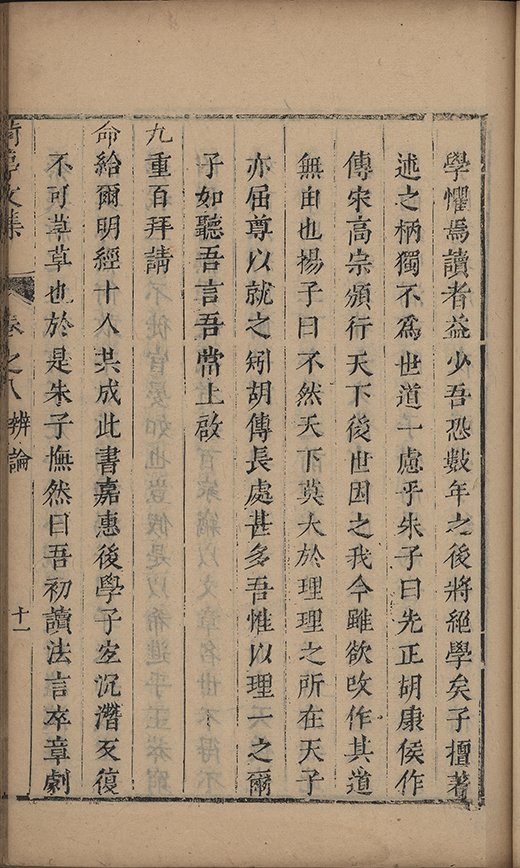 學懼焉讀者益少吾恐數年之後將絕學矣子擅著
述之柄獨不爲世道一慮乎朱子曰先正胡康侯作
傳宋高宗頒行天下後世因之我今雖欲改作其道
無由也揚子曰不然天下莫大於理理之所在天子
亦屈尊以就之矧胡傳長處甚多吾惟以理一之爾
子如聽吾言吾當上啟
九重百拜請
命給爾明經十人共成此書嘉惠後學子宜沉潛反復
不可草草也於是朱子憮然曰吾初讀法言卒章劇
文集 卷之八 辨論 十一